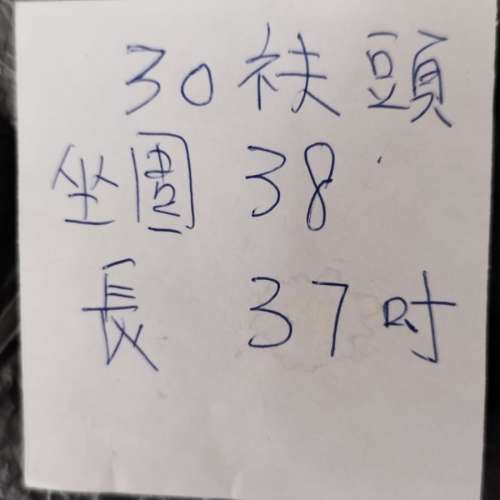 30 袂頭
坐圍 38
長 37吋